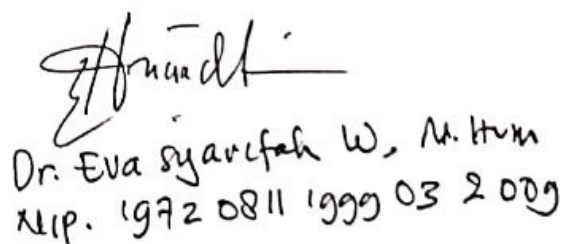 Dr. Eva Syarifah W, M. Hum
NIP. 1972 0811 1999 03 2 009